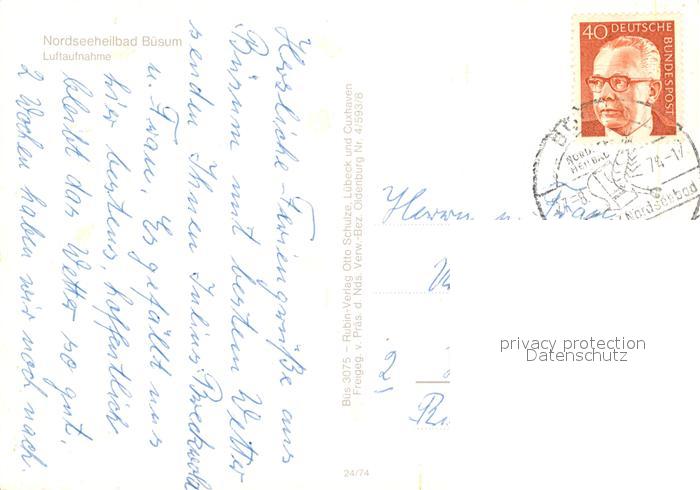 Nordseeheilbad Büsum
Luftaufnahme
Herzliche Feriengrüße aus
Büsum mit bestem Wetter
senden Ihnen Julius
u. Frau. Es gefällt uns
hier bestens, hoffentlich
bleibt das Wetter so gut.
2 Wochen haben wir noch nach.
Büs 3075 – Rubin-Verlag Otto Schulze, Lübeck und Cuxhaven
Freigeg. v. Präs. d. Nds. Verw.-Bez. Oldenburg Nr. 4/593/8
24/74
40 DEUTSCHE
BUNDESPOST
74-17
Nordseebad
Herrn u. Frau
2
privacy protection
Datenschutz